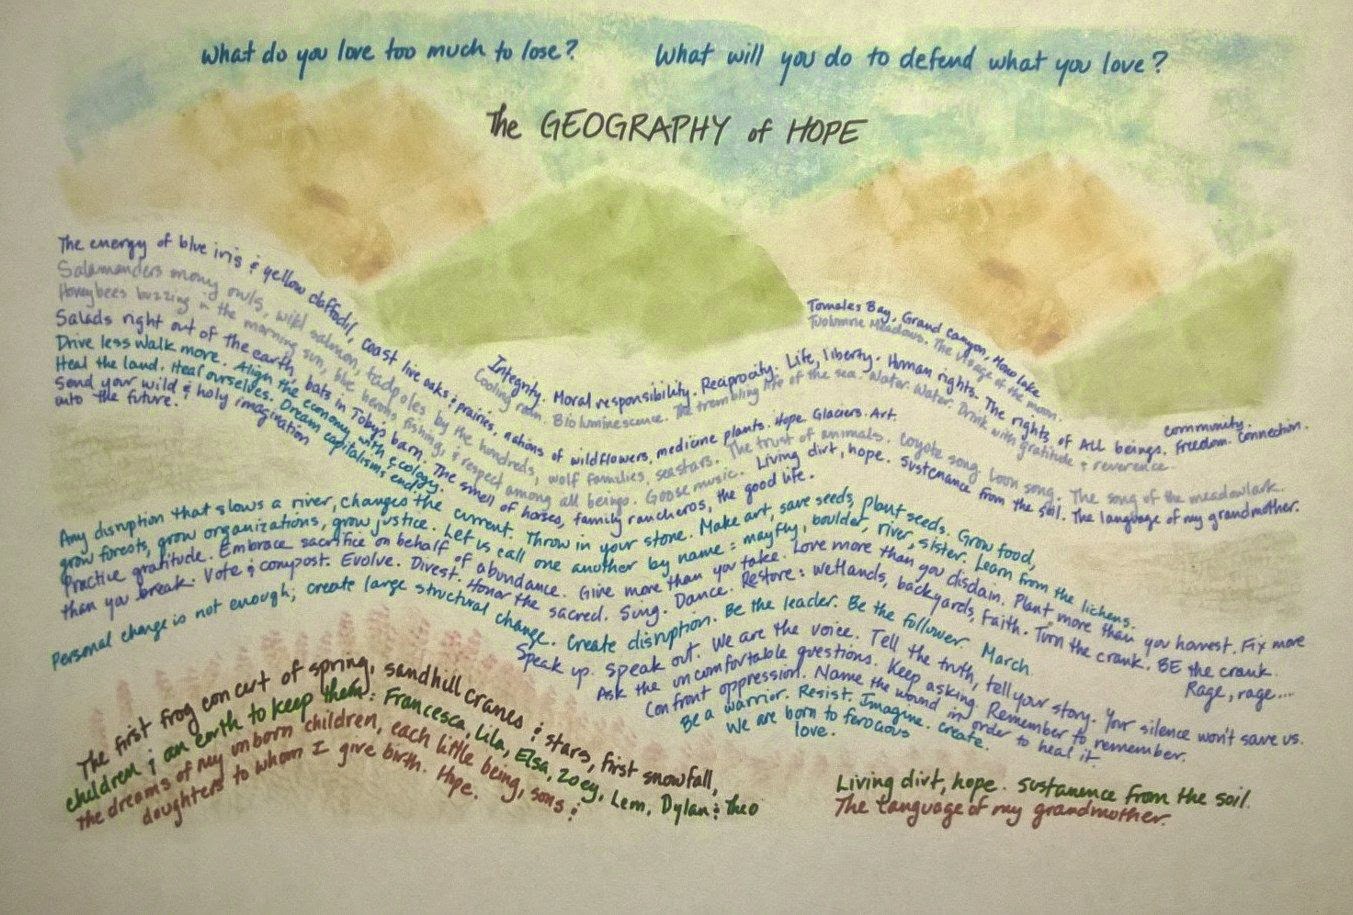 What do you love too much to lose? What will you do to defend what you love?
The GEOGRAPHY of HOPE
The energy of blue iris & yellow daffodil, coast live oaks & prairies, nations of wildflowers, medicine plants. Hope. Glaciers. Art.
Salamanders mony owls, wild salmon, tadpoles by the hundreds, wolf families, sea stars. The trust of animals. Coyote song. Loon song. The song of the meadowlark.
Honeybees buzzing in the morning sun, blue herons fishing, & respect among all beings. Goose music. Living dirt, hope. Sustenance from the soil. The language of my grandmother.
Salads right out of the earth, bats in Tobys barn. The smell of horses, family rancheros, the good life.
Drive less walk more. Align the economy with ecology.
Heal the land. Heal ourselves. Dream capitalisms end.
Send your wild & holy imagination
into the future.
Tomales Bay, Grand Canyon, Mono Lake
Tuolumne Meadows. The visage of the moon.
Integrity. Moral responsibility. Reciprocity. Life, liberty. Human rights. The rights of ALL beings. Freedom. Connection.
community.
Cooling rain. Bioluminescence. The trembling life of the sea. Water. Water. Drink with gratitude & reverence.
Any disruption that slows a river, changes the current. Throw in your stone. Make art, save seeds, plant seeds. Grow food,
grow forests, grow organizations, grow justice. Let us call one another by name: mayfly, boulder, river, sister. Learn from the lichens.
Practice gratitude. Embrace sacrifice on behalf of abundance. Give more than you take. Love more than you disdain. Plant more than you harvest. Fix more
than you break. Vote & compost. Evolve. Divest. Honor the sacred. Sing. Dance. Restore: wetlands, backyards, faith. Turn the crank. BE the crank.
Personal change is not enough; create large structural change. Create disruption. Be the leader. Be the follower. March.
Rage, rage....
Speak up. Speak out. We are the voice. Tell the truth, tell your story. Your silence won't save us.
Ask the uncomfortable questions. Keep asking. Remember to remember.
Confront oppression. Name the wound in order to heal it.
Be a warrior. Resist. Imagine. Create.
We are born to ferocious
love.
The first frog concert of spring, sandhill cranes & stars, first snowfall,
children & an earth to keep them: Francesca, Lila, Elsa, Zoey, Lem, Dylan & Theo
The dreams of my unborn children, each little being, sons &
daughters to whom I give birth. Hope.
Living dirt, hope. Sustenance from the soil.
The language of my grandmother.